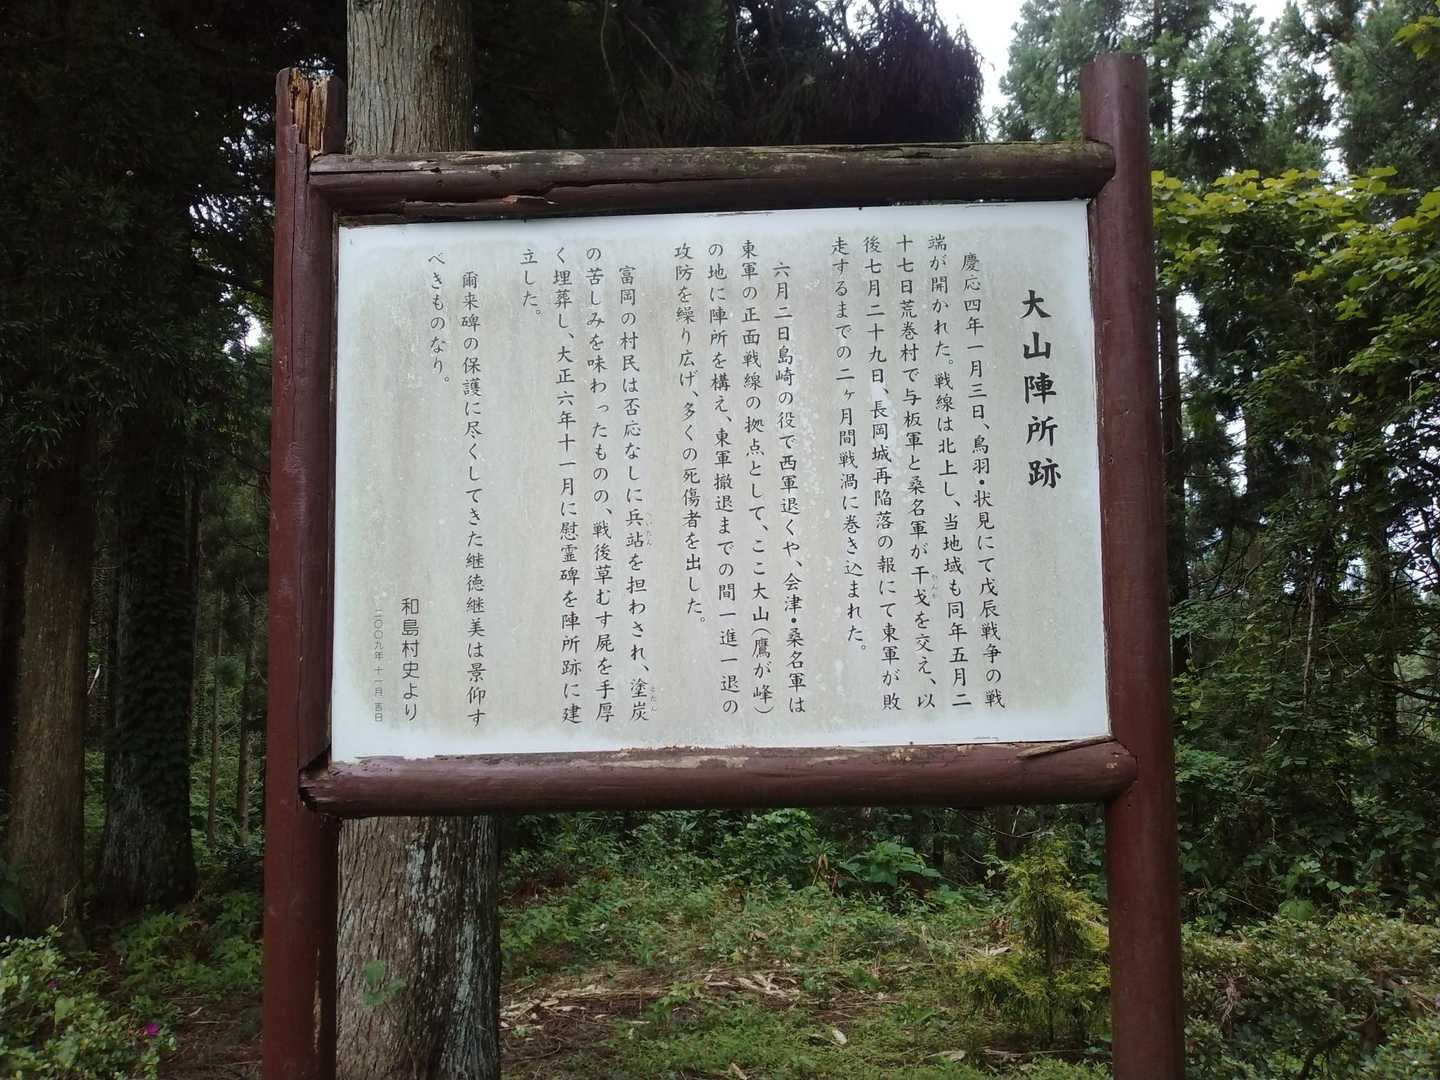 大山陣所跡
慶応四年一月三日、鳥羽・状見にて戊辰戦争の戦
端が開かれた。戦線は北上し、当地域も同年五月二
十七日荒巻村で与板軍と桑名軍が干戈を交え、以
後七月二十九日、長岡城再陥落の報にて東軍が敗
走するまでの二ヶ月間戦渦に巻き込まれた。
六月二日島崎の役で西軍退くや、会津・桑名軍は
東軍の正面戦線の拠点として、ここ大山(鷹が峰)
の地に陣所を構え、東軍撤退までの間一進一退の
攻防を繰り広げ、多くの死傷者を出した。
富岡の村民は否応なしに兵站を担わされ、塗炭
の苦しみを味わったものの、戦後草むす屍を手厚
く埋葬し、大正六年十一月に慰霊碑を陣所跡に建
立した。
爾来碑の保護に尽くしてきた継徳継美は景仰す
べきものなり。
和島村史より
二〇〇九年 十一月 吉日